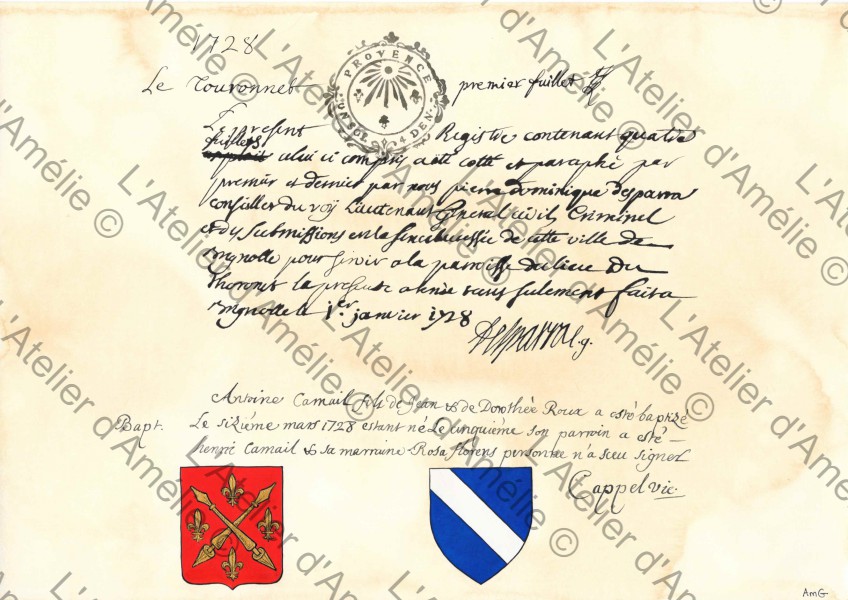 1728
PROVENCE
UNSOL 4 DEN.
Le Touronnet premier fuillet
Le present Registre contenant quatre
fuillets
celui ci compris a esté cotté et paraphé par
premier et dernier par nous pierre dominique desparra
conseiller du roy Lieutenant General civil Criminel
et des submissions en la senechaussée de cette ville de
Brignolle pour servir a la paroisse du lieu Du
Thoronet la presente année seulement fait a
Brignolle le 1er janvier 1728
Desparra l.g.
Antoine Camail fils de Jean & de Dorothée Roux a esté baptizé
Bapt. Le sixiéme mars 1728 estant né Le cinquiéme son parrain a esté
henric Camail & sa marraine Rosa florens personne n'a sceu signer
Cappel vic.
AmG
L'Atelier d'Amélie ©